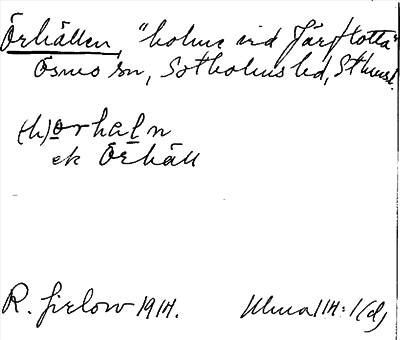 Örhällen, "holme vid Järflotta"
Ösmo sn, Sotholms hd, Sthmsl.
(h)ọrhaḷn
ek Örhäll
R. Gielow 1914. Ulma 114:1(d)